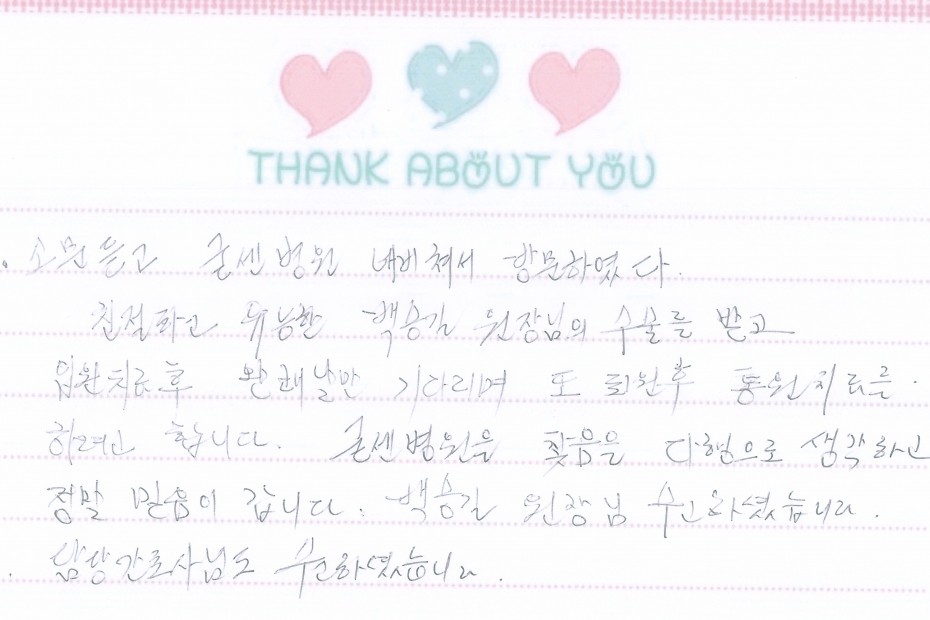 THANK ABOUT YOU
. 소문듣고 굳센병원 네비쳐서 방문하였다.
친절하고 유능한 백승길 원장님의 수술를 받고
입원치료후 완쾌날만 기다리며 또 퇴원후 통원치료를
하려고 합니다. 굳센병원을 찾음을 다행으로 생각하고
정말 믿음이 갑니다. 백승길 원장님 수고하셨습니다.
. 담당간호사님도 수고하셨습니다.